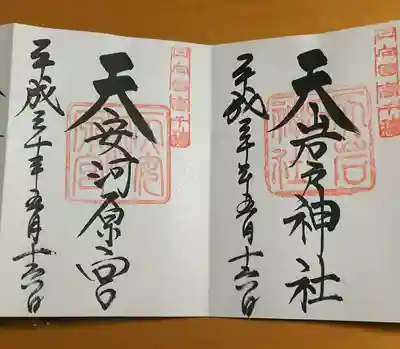 天岩戸神社
平成三十年五月十六日
天安河原宮
平成三十年五月十六日